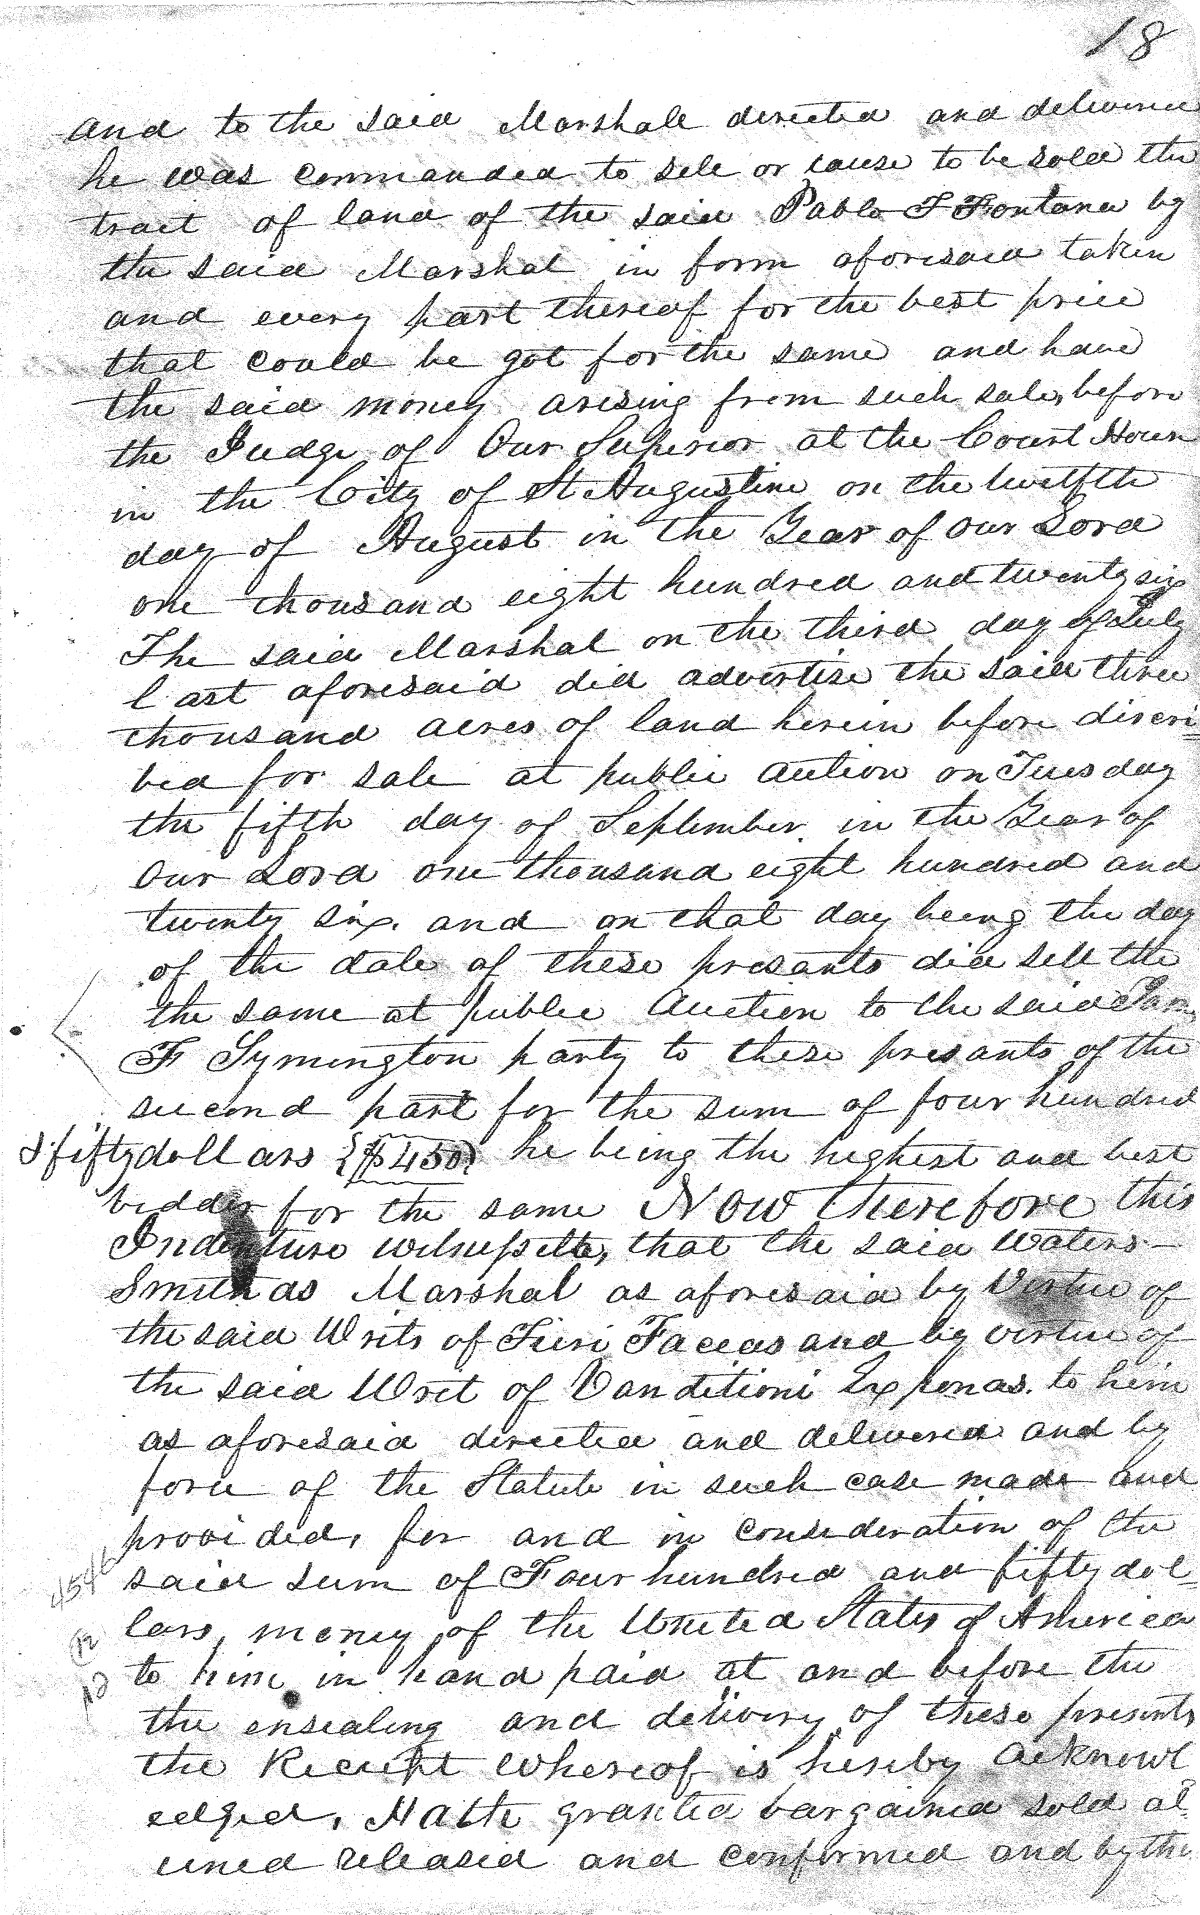 18
and to the said Marshall directed and delivered
he was commanded to sell or cause to be sold the
tract of land of the said Pablo F Fontana by
the said Marshal in form aforesaid taken
and every part thereof for the best price
that could be got for the same and have
the said money arising from such sale, before
the Judge of Our Superior at the Court House
in the City of St Augustine on the twelfth
day of August in the Year of our Lord
one thousand eight hundred and twenty six
The said Marshal on the third day of July
last aforesaid did advertise the said three
thousand acres of land herein before discri=
bed for sale at public aution on Tuesday
the fifth day of September in the Year of
Our Lord one thousand eight hundred and
twenty six. and on that day being the day
of the date of these presants did sell the
the same at public Auction to the said
F Symington party to these presants of the
second part for the sum of four hundred
& fifty dollars {$450} he being the highest and best
bidder for the same Now Therefore this
Indenture witnesseth, that the said Waters
Smith as Marshal as aforesaid by Virtue of
the said Writs of Fieri Facias and by virtue of
the said Writ of Vanditioni Exponas. to him
as aforesaid directed and delivered and by
force of the Statute in such case made and
provided, for and in consideration of the
said sum of Four hundred and fifty dol=
lars, money of the United States of America
to him in hand paid at and before the
the ensealing and delivery of these presents
the Receipt whereof is hereby acknowl
edged, Hath granted bargained sold al=
iened released and confirmed and by the
4546